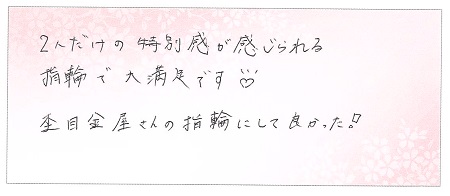 2人だけの特別感が感じられる
指輪で大満足です
杢目金屋さんの指輪にして良かった!!